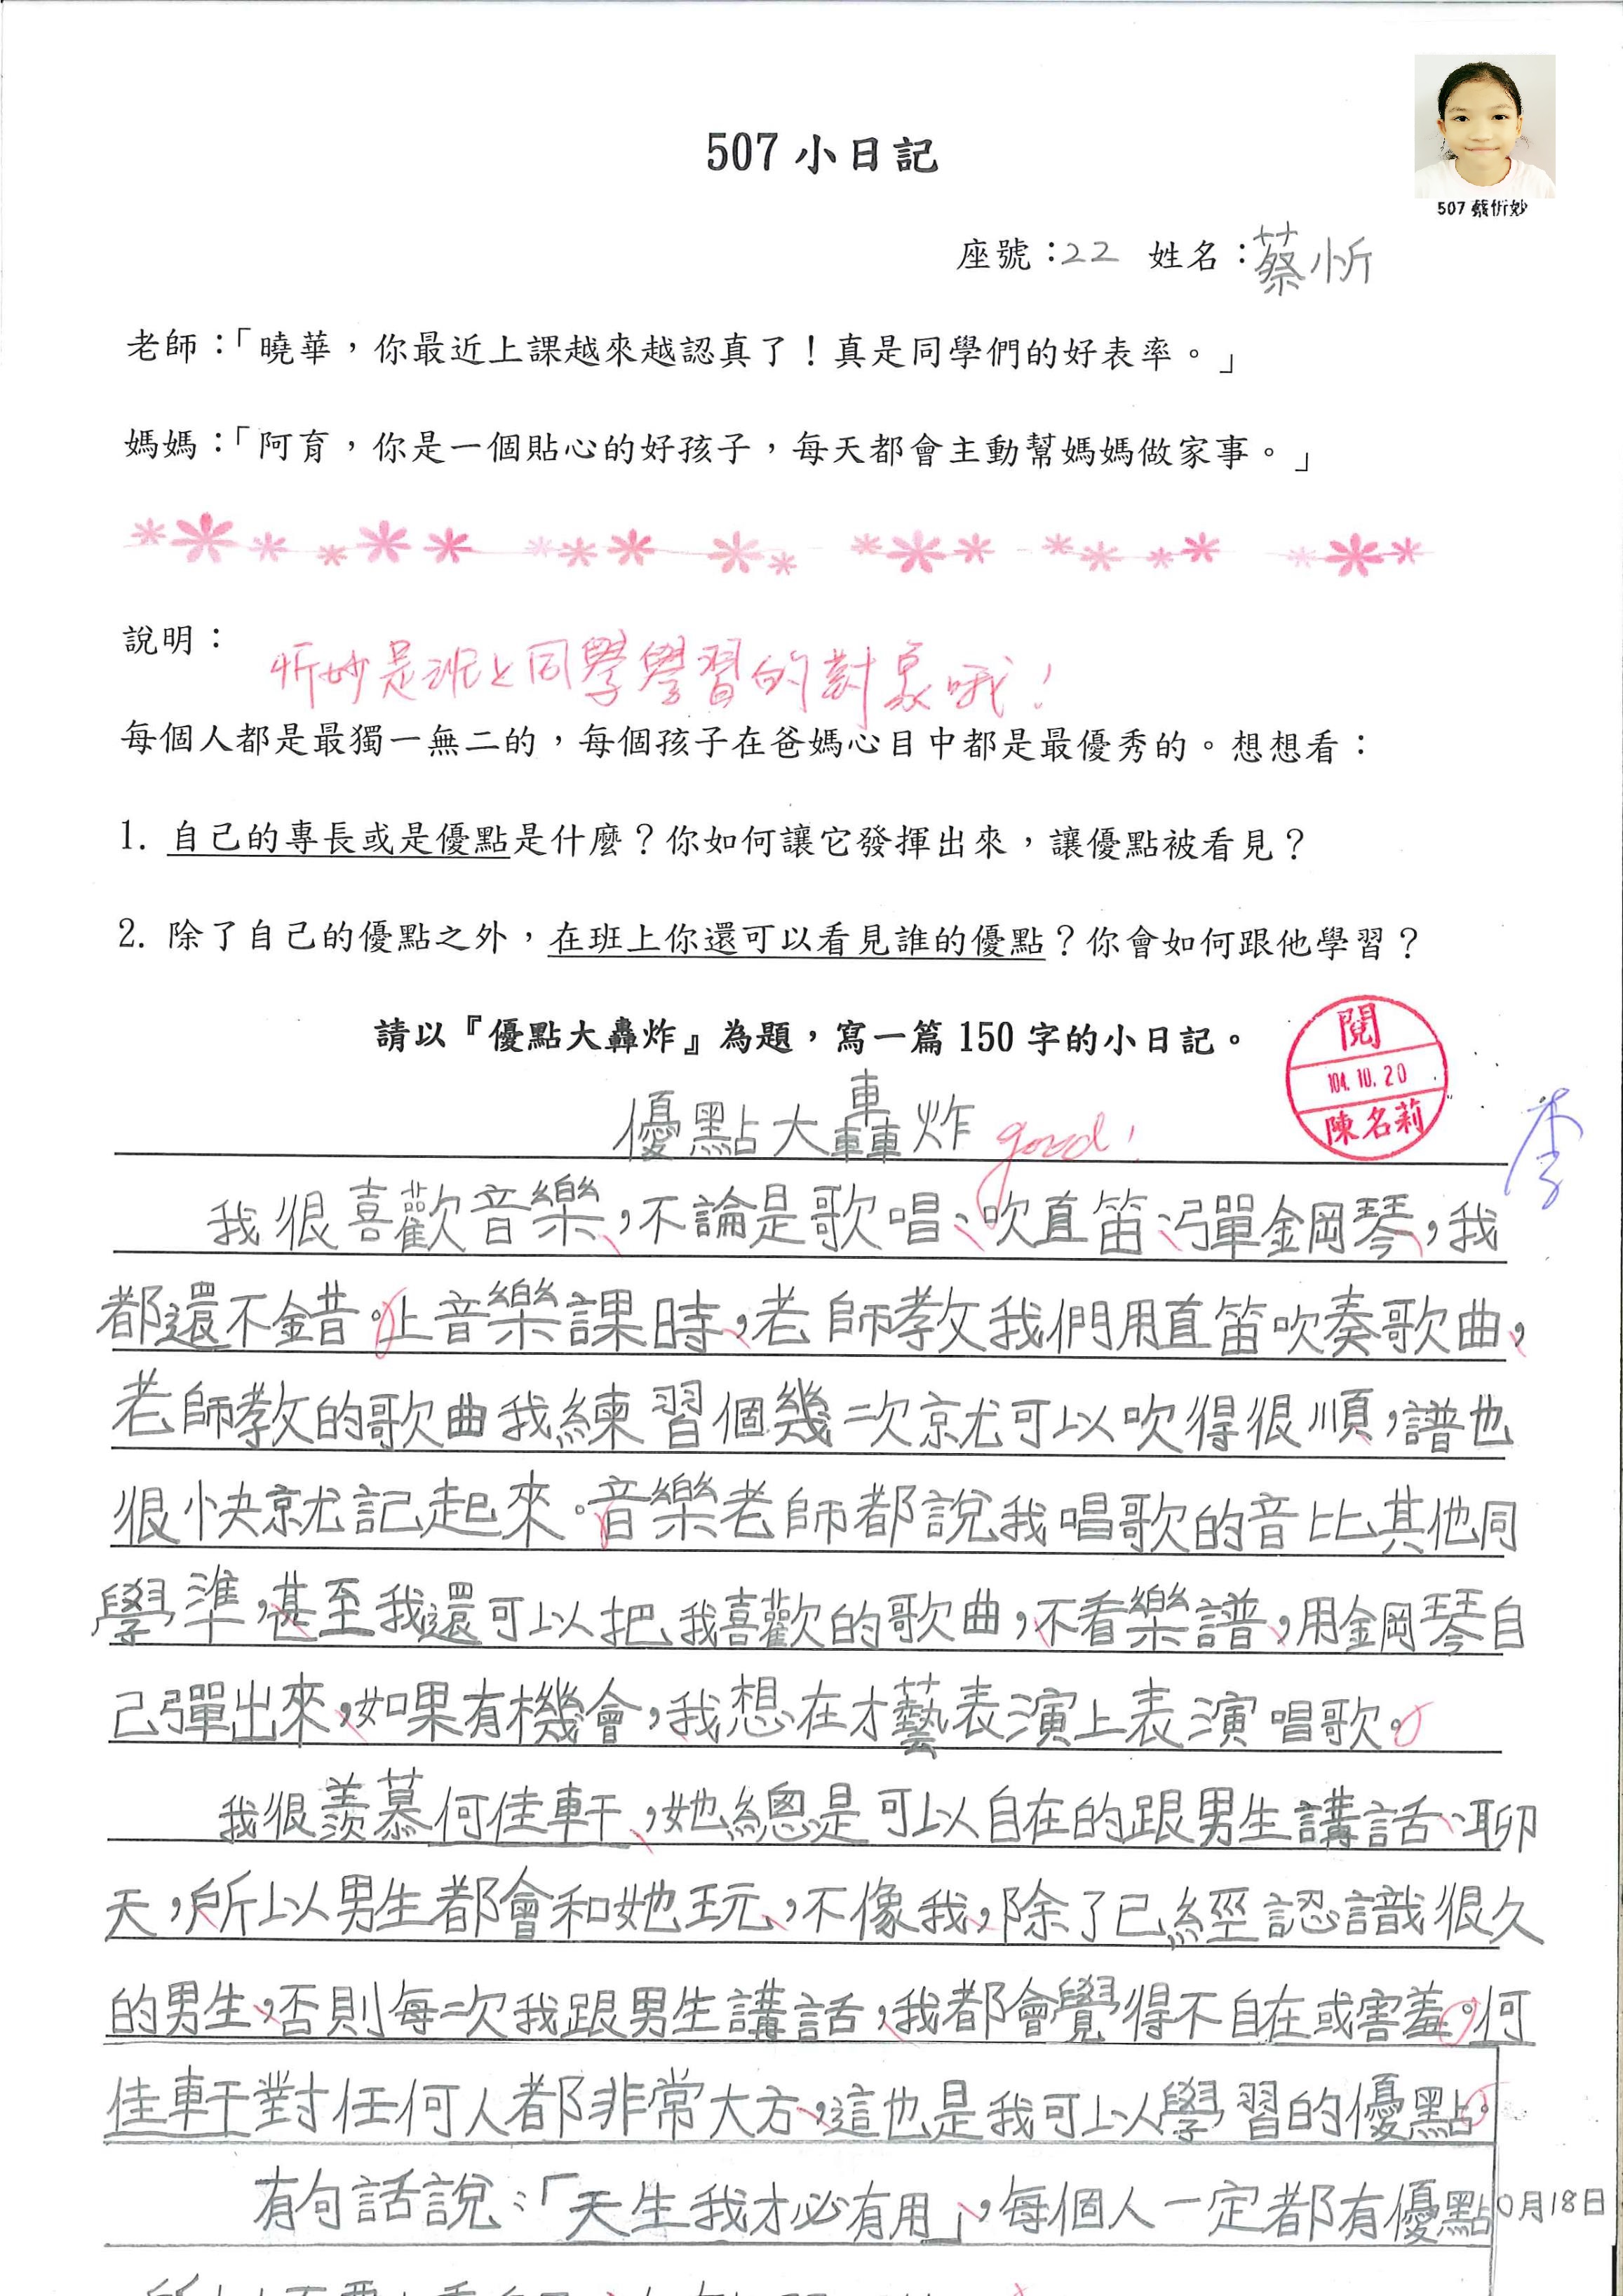 507 小日記
507 蔡忻妙
座號：22 姓名：蔡忻
老師：「曉華，你最近上課越來越認真了！真是同學們的好表率。」
媽媽：「阿育，你是一個貼心的好孩子，每天都會主動幫媽媽做家事。」
說明：
忻妙是班上同學學習的對象哦！
每個人都是最獨一無二的，每個孩子在爸媽心目中都是最優秀的。想想看：
1. 自己的專長或是優點是什麼？你如何讓它發揮出來，讓優點被看見？
2. 除了自己的優點之外，在班上你還可以看見誰的優點？你會如何跟他學習？
請以『優點大轟炸』為題，寫一篇 150 字的小日記。
閱
104.10.20
陳名莉
李
優點大轟炸 good!
我很喜歡音樂，不論是歌唱、吹直笛、彈鋼琴，我
都還不錯。上音樂課時，老師教我們用直笛吹奏歌曲，
老師教的歌曲我練習個幾次就可以吹得很順，譜也
很快就記起來。音樂老師都說我唱歌的音比其他同
學準，甚至我還可以把我喜歡的歌曲，不看樂譜，用鋼琴自
己彈出來，如果有機會，我想在才藝表演上表演唱歌。
我很羨慕何佳軒，她總是可以自在的跟男生講話、聊
天，所以男生都會和她玩，不像我，除了已經認識很久
的男生，否則每次我跟男生講話，我都會覺得不自在或害羞。何
佳軒對任何人都非常大方，這也是我可以學習的優點。
有句話說：「天生我才必有用」，每個人一定都有優點
0月18日